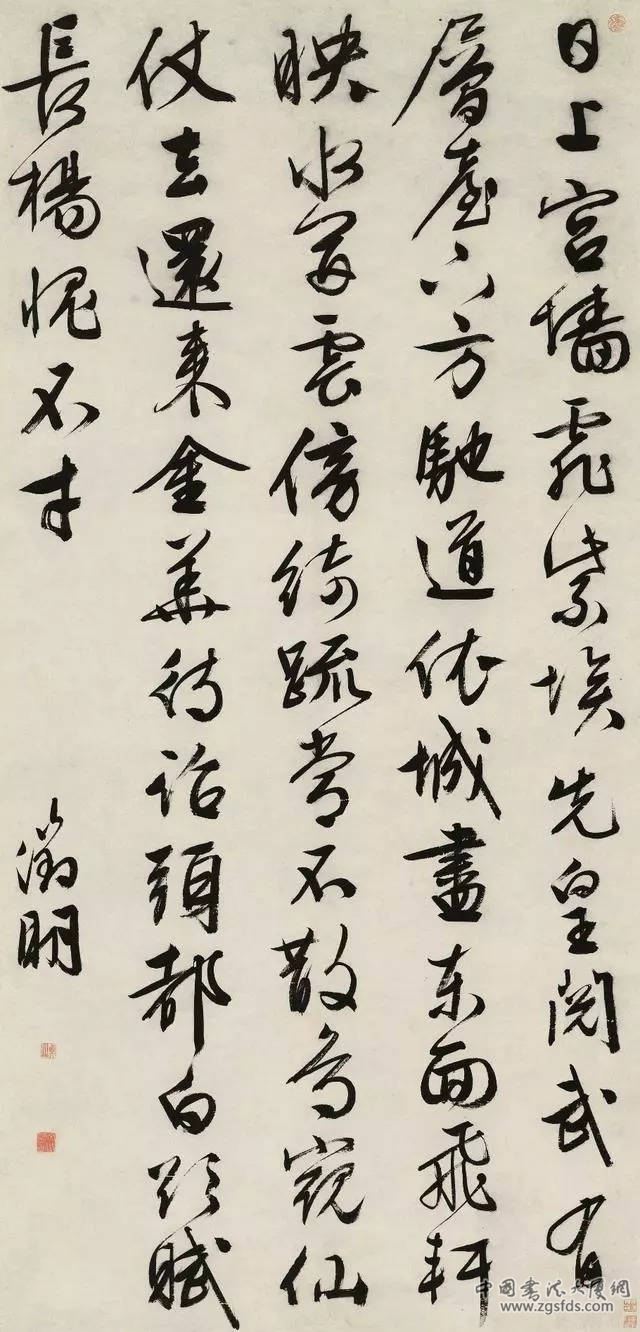 日上宮墻霏紫埃先皇閱武有
層臺下方馳道依城盡東面飛軒
映水開雲傍綺疏常不散鳥窺仙
仗去還来金華待詔頭都白欲賦
長楊愧不才
徵明
中國書法大廈網
www.zgsfds.com